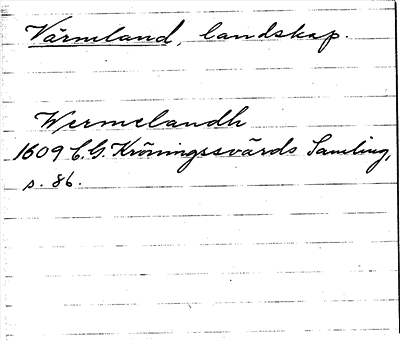 Värmland, landskap.
Wermelandh
1609 C. G. Kröningssvärds Samling,
s. 86.